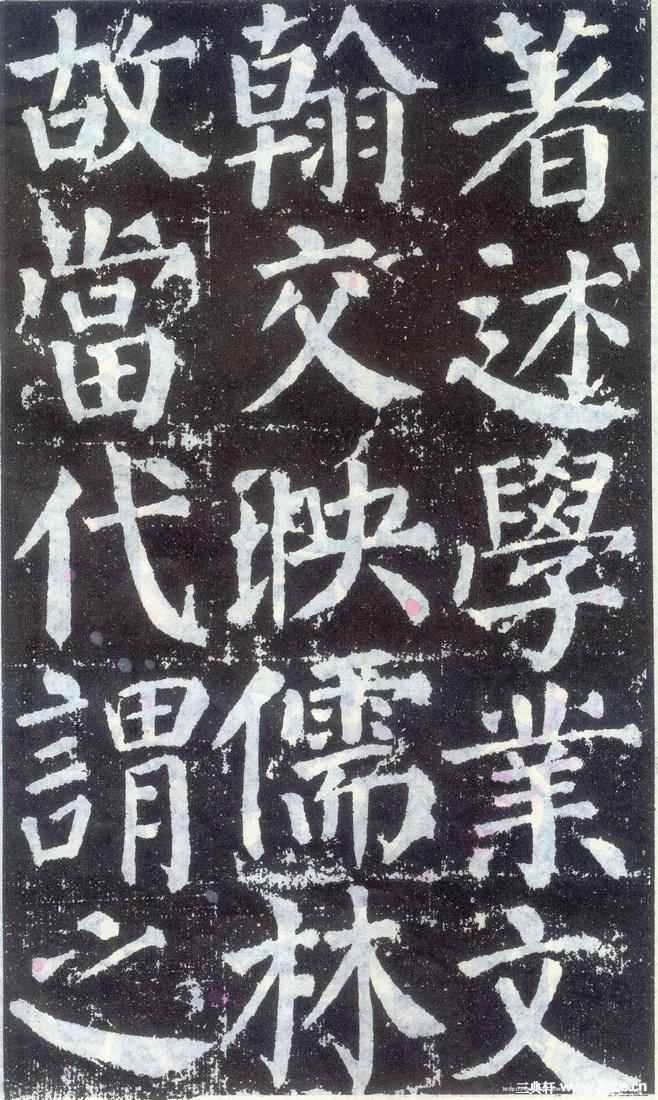 著述學業文
翰交映儒林
故當代謂之
三典轩